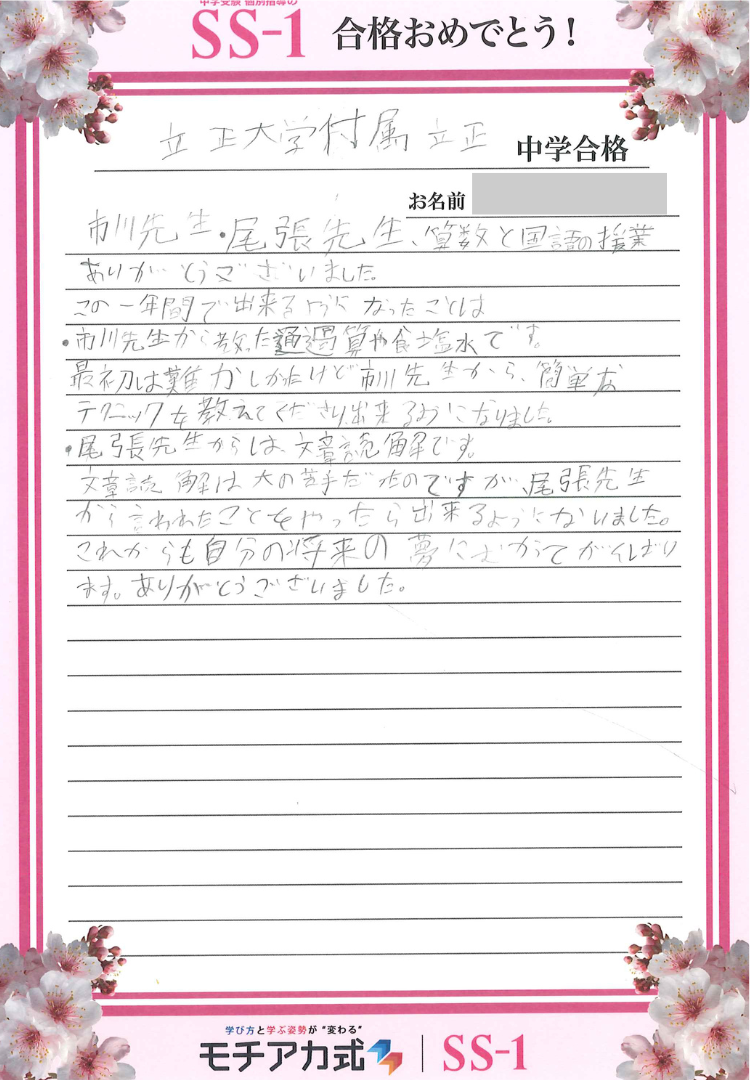 中学受験 個別指導の
SS-1 合格おめでとう!
立正大学付属立正 中学合格
お名前
市川先生・尾張先生、算数と国語の授業
ありがとうございました。
この一年間で出来るようになったことは
・市川先生から教った通過算や食塩水です。
最初は難かしかたけど市川先生から、簡単な
テクニックを教えてくださり、出来るようになりました。
・尾張先生からは、文章読解です。
文章読解は大の苦手だたのですが、尾張先生
から言われたことをやったら出来るようにないました。
これからも自分の将来の夢にむかってがんばり
ます。ありがとうございました。
学び方と学ぶ姿勢が“変わる”
モチアカ式 SS-1